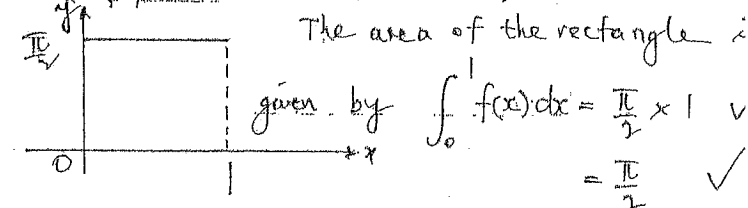 y
π/2
The area of the rectangle i
given by ∫₀¹ f(x) dx = π/2 × 1 ✓
= π/2 ✓
0
1
x